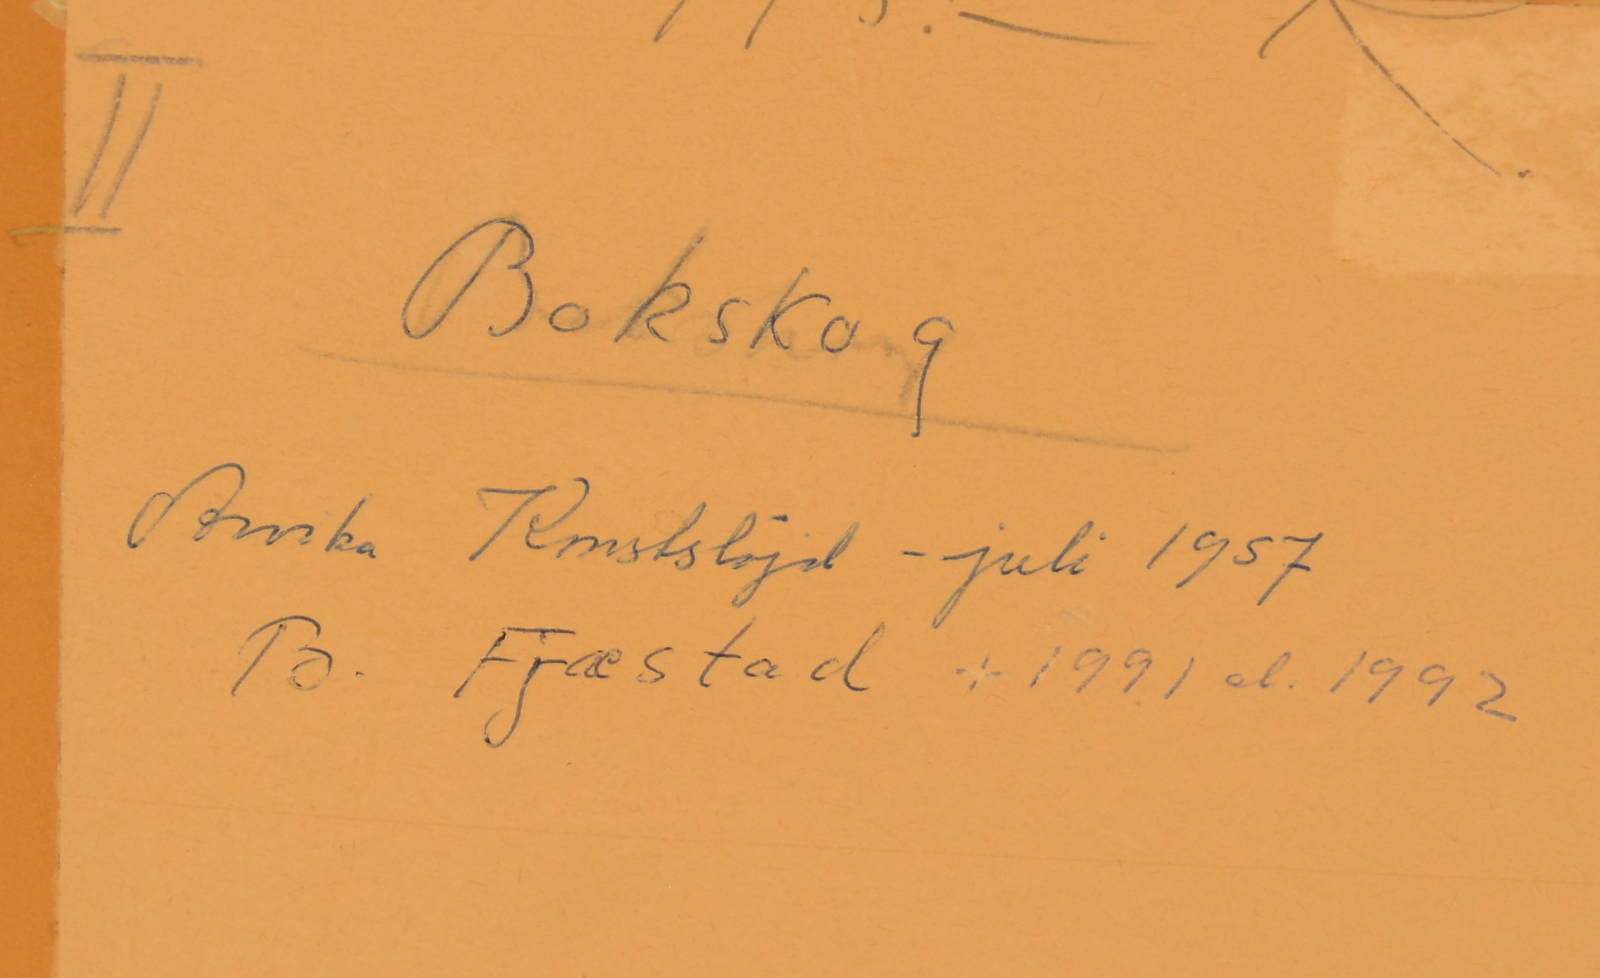 II
Bokskog
Arvika Konstslöjd - juli 1957
B. Fjæstad + 1991 el. 1992